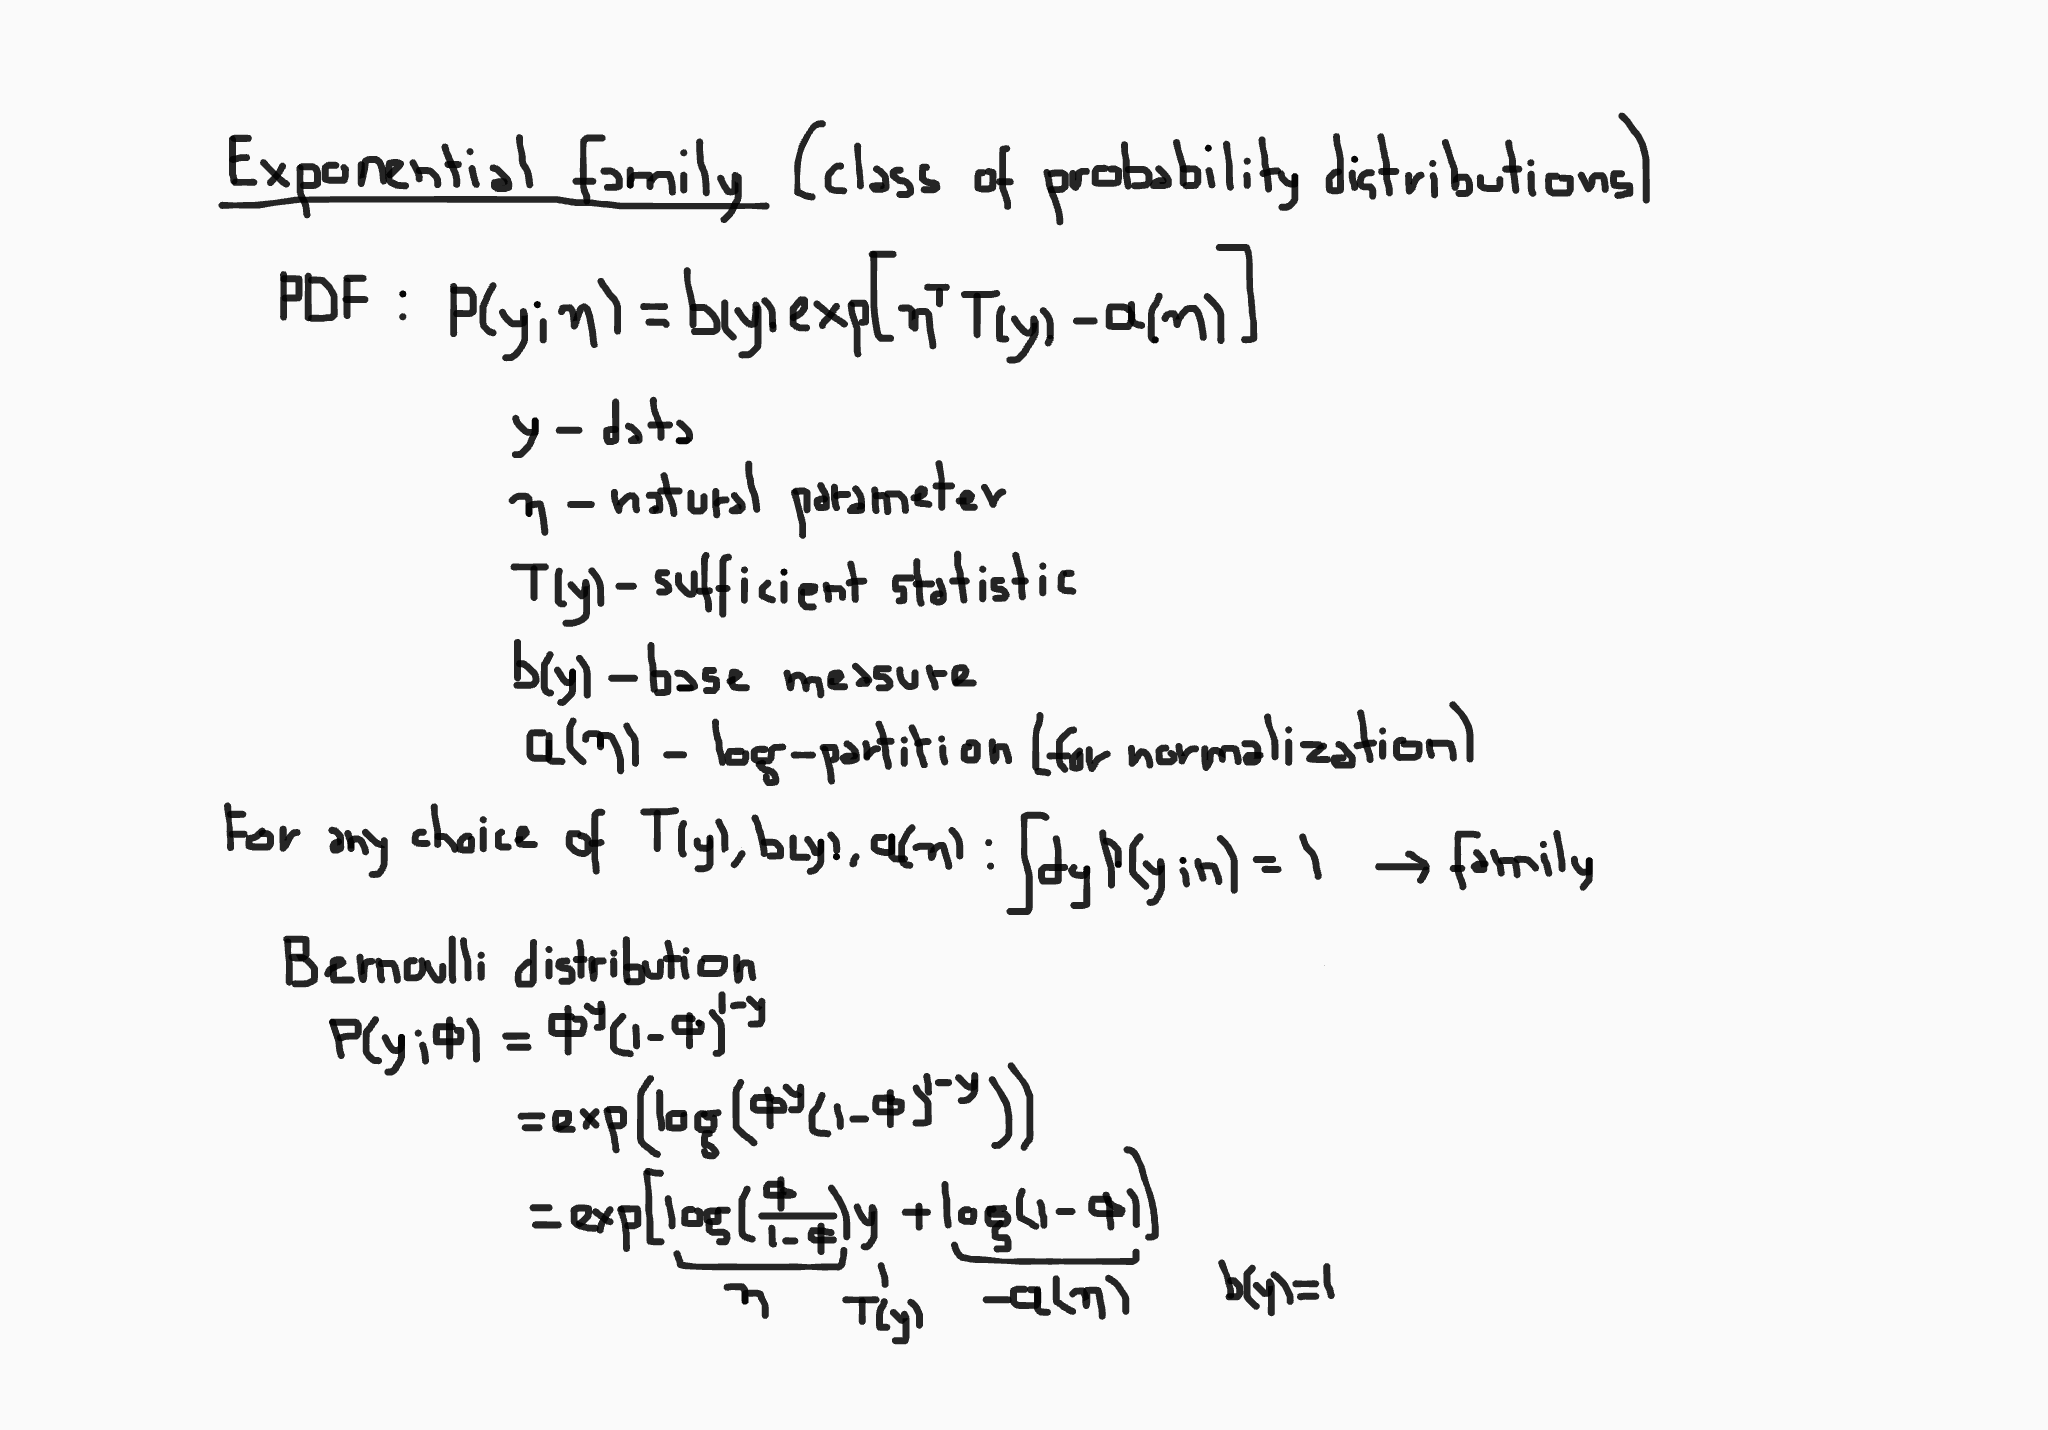 Exponential family (class of probability distributions)
PDF : P(y;η) = b(y) exp[η^T T(y) - a(η)]
y - data
η - natural parameter
T(y) - sufficient statistic
b(y) - base measure
a(η) - log-partition (for normalization)
For any choice of T(y), b(y), a(η) : ∫dy P(y;η) = 1 → family
Bernoulli distribution
P(y;φ) = φ^y (1-φ)^{1-y}
= exp(log(φ^y (1-φ)^{1-y}))
= exp[log(φ/(1-φ))y + log(1-φ)]
η T(y) -a(η) b(y)=1